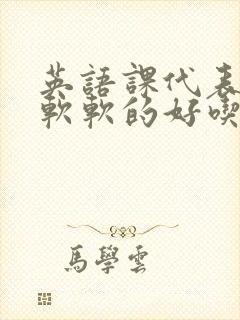 英語課代表
軟軟的好喫
馬學雲